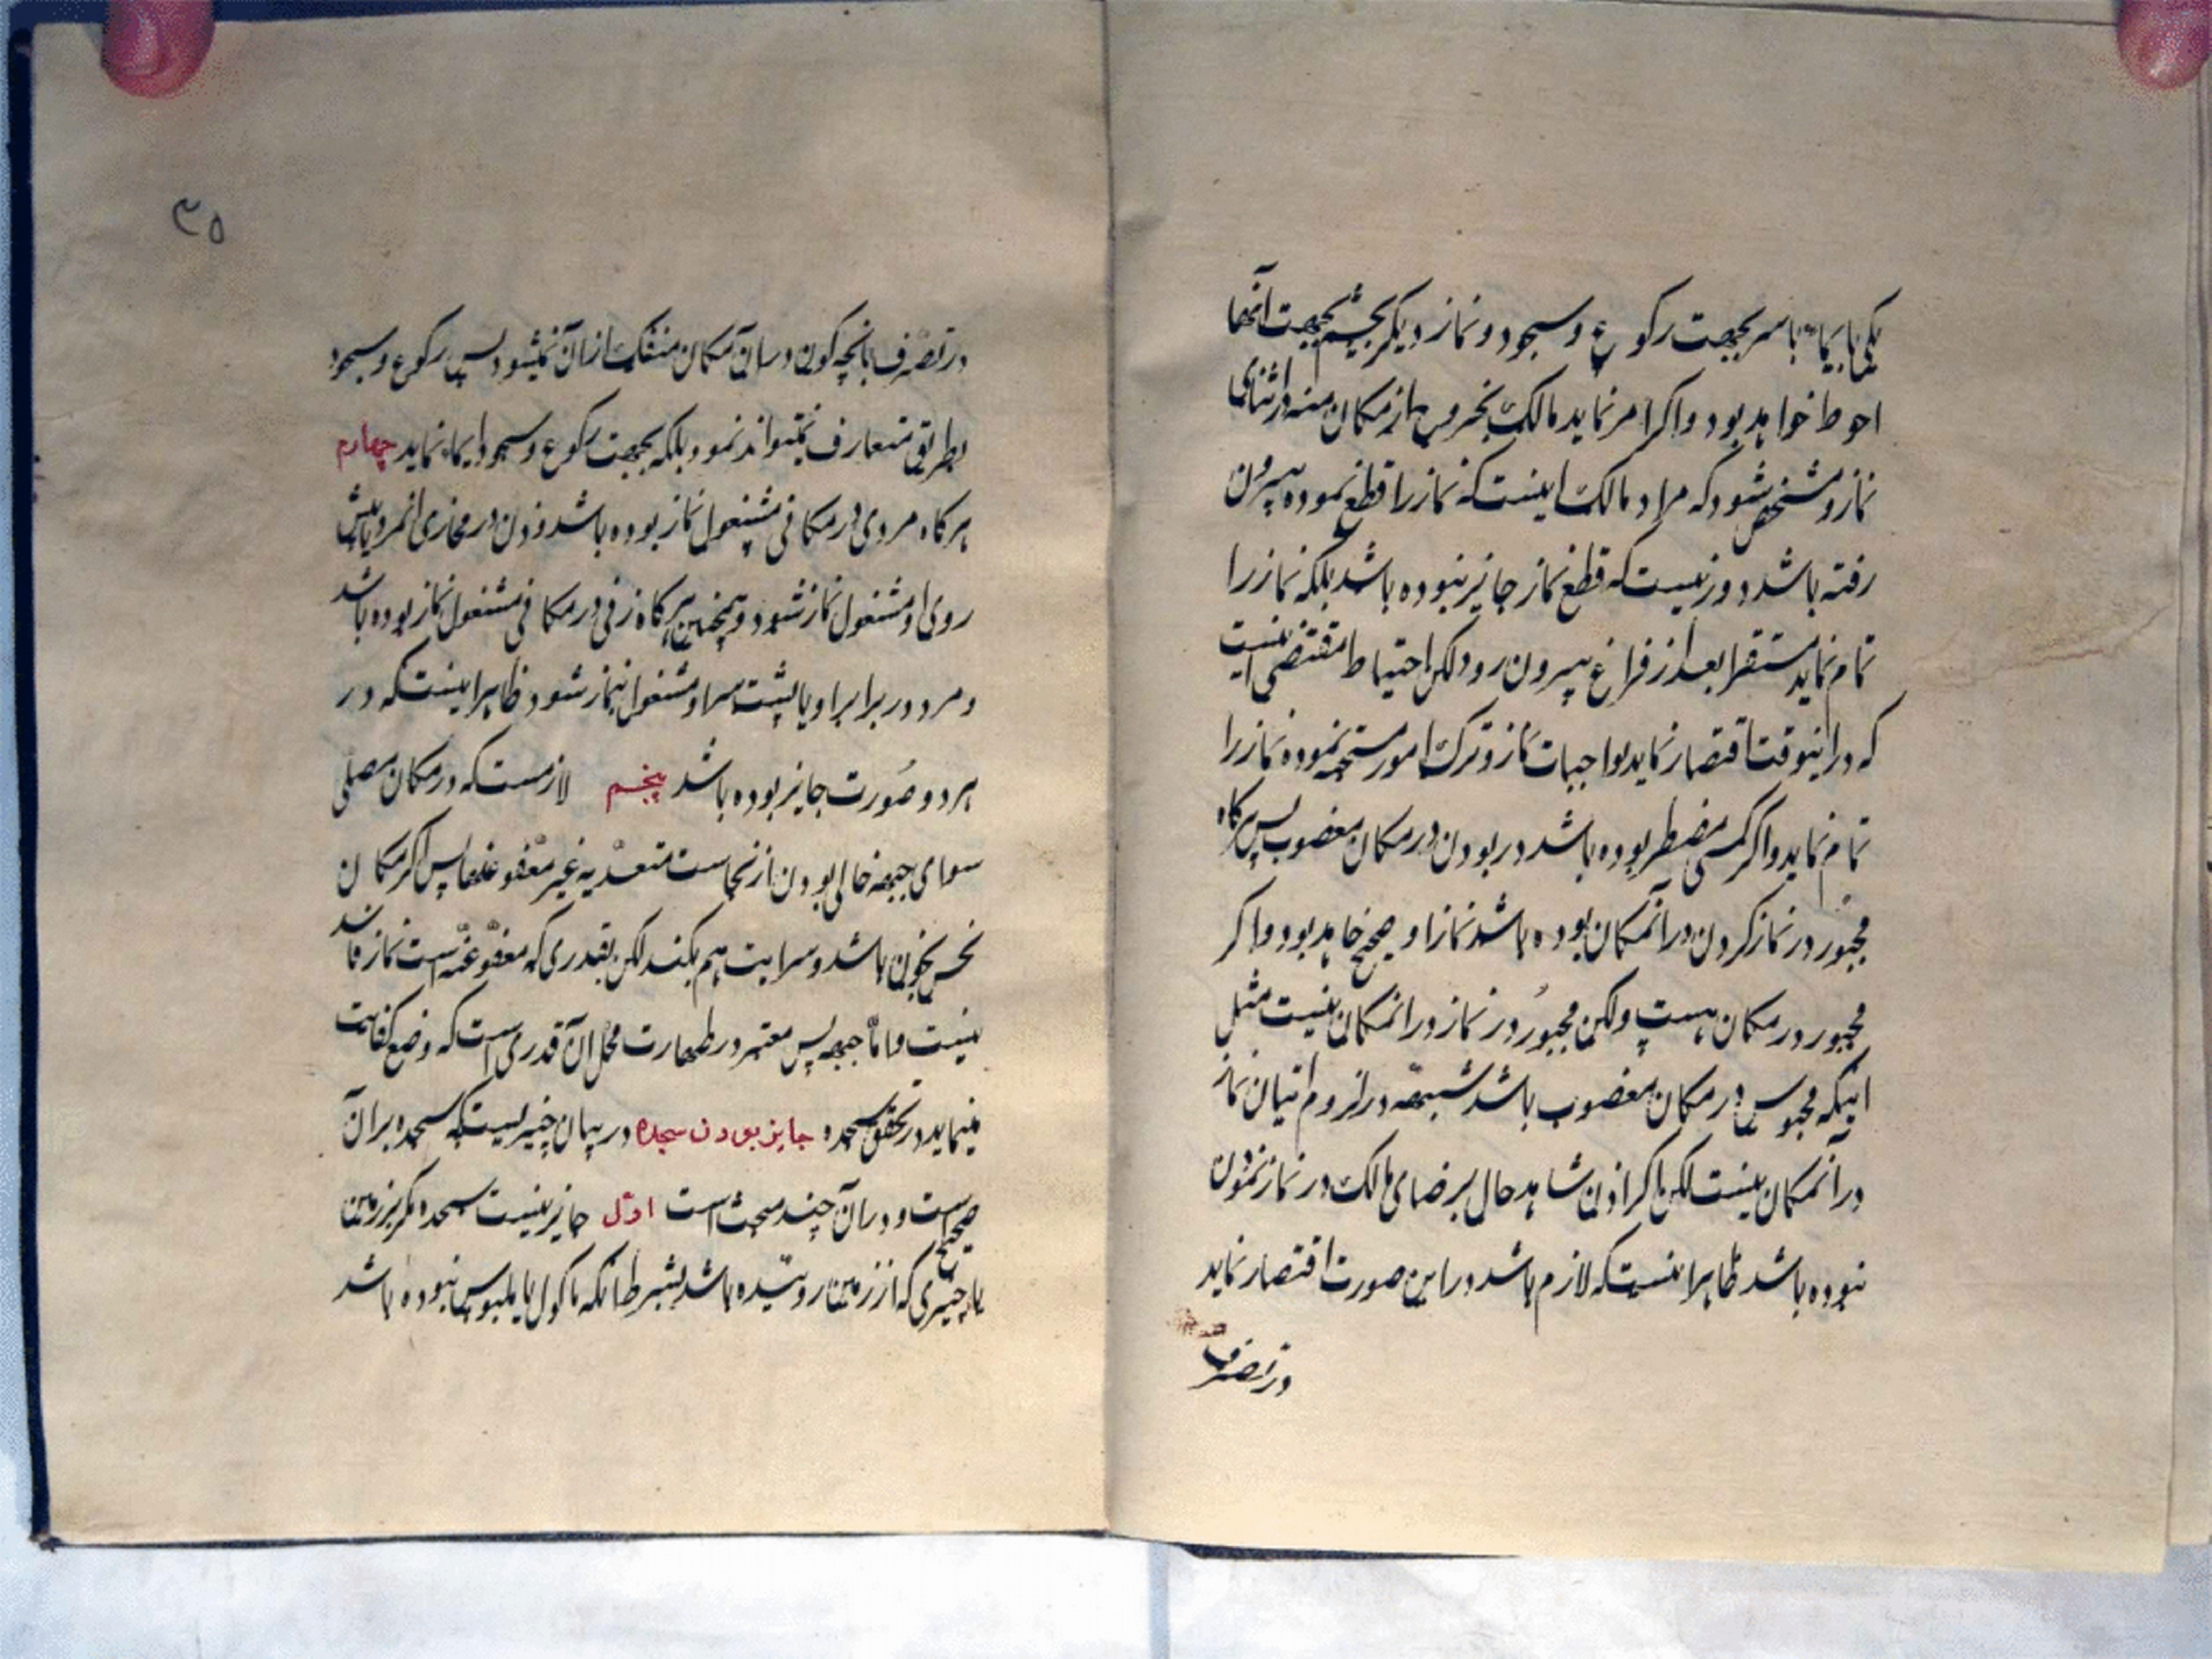 یکی بایماء با سر بجهت رکوع و سجود و نماز دیگر بچشم بجهت آنها
احوط خواهد بود و اگر امر نماید مالک بخروج از مکان منه در اثنای
نماز و مشخص شود که مراد مالک اینست که نماز را قطع نموده بیرون
رفته باشد دور نیست که قطع نماز جایز نبوده باشد بلکه نماز را
تمام نماید مستقرا بعد از فراغ بیرون رود لکن احتیاط مقتضی اینست
که در اینوقت اقتصار نماید بواجبات نماز و ترک امور مستحبه نموده نماز را
تمام نماید و اگر کسی مضطر بوده باشد در بودن در مکان مغصوب پس هرگاه
مجبور در نماز کردن در آنمکان بوده باشد نماز او صحیح خاهد بود و اگر
مجبور در مکان هست ولکن مجبور در نماز در انمکان نیست مثل
اینکه محبوس در مکان مغصوب باشد شبهه در لزوم اتیان نماز
در آنمکان نیست لکن اگر اذن شاهد حال برضای مالک در نماز نمودن
نبوده باشد ظاهرا اینست که لازم باشد در این صورت اقتصار نماید
در تصرف
۳۵
در تصرف بانچه کون در ان مکان منفک از ان نمیشود پس رکوع و سجود
بطریق متعارف نمیتواند نمود بلکه بجهت رکوع و سجود ایماء نماید چهارم
هرگاه مردی در مکانی مشغول نماز بوده باشد و زن در محاذی انمرد یا پیش
روی او مشغول نماز شود و همچنین هرگاه زنی در مکانی مشغول نماز بوده باشد
و مرد در برابر او یا پشت سر او مشغول بنماز شود ظاهر اینست که در
هر دو صورت جایز بوده باشد پنجم لازمست که در مکان مصلی
سوای جبهه خالی بودن از نجاست متعدیه غیر معفو عنها پس اگر مکان
نجس بخون باشد و سرایت هم بکند لکن بقدری که معفو عنه است نماز فاسد
نیست و اما جبهه پس معتبر در طهارت محل ان قدری است که وضع کفایت
مینماید در تحقق سجده جایز بودن سجده در بیان چیزیست که سجده بر ان
صحیح است و در ان چند مبحث است اول جایز نیست سجده مگر بر زمین
یا چیزی که از زمین روئیده باشد بشرط انکه ماکول یا ملبوس نبوده باشد